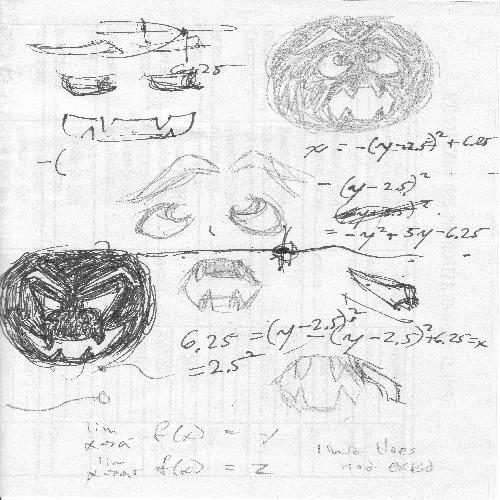 6.25
x = -(y-2.5)² + 6.25
-(
- (y-2.5)²
= -y² + 5y - 6.25
6.25 = (y-2.5)² - (y-2.5)² + 6.25 = x
= 2.5²
lim f(x) = y
lim f(x) = z
limit does
not exist